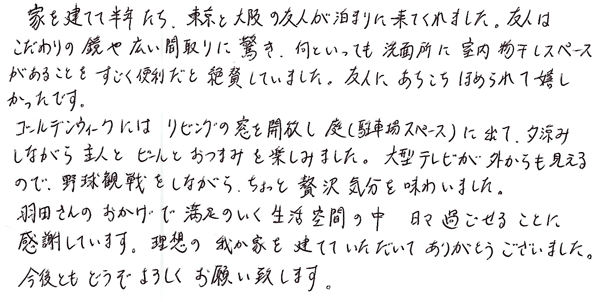 家を建てて半年たち、東京と大阪の友人が泊まりに来てくれました。友人は
こだわりの鏡や広い間取りに驚き、何といっても洗面所に室内物干しスペース
があることをすごく便利だと絶賛していました。友人にあちこちほめられて嬉し
かったです。
ゴールデンウィークにはリビングの窓を開放し庭(駐車場スペース)に出て、夕涼み
しながら主人とビールとおつまみを楽しみました。大型テレビが外からも見える
ので、野球観戦をしながら、ちょっと贅沢気分を味わいました。
羽田さんのおかげで満足のいく生活空間の中 日々過ごせることに
感謝しています。理想の我が家を建てていただいてありがとうございました。
今後ともどうぞよろしくお願い致します。